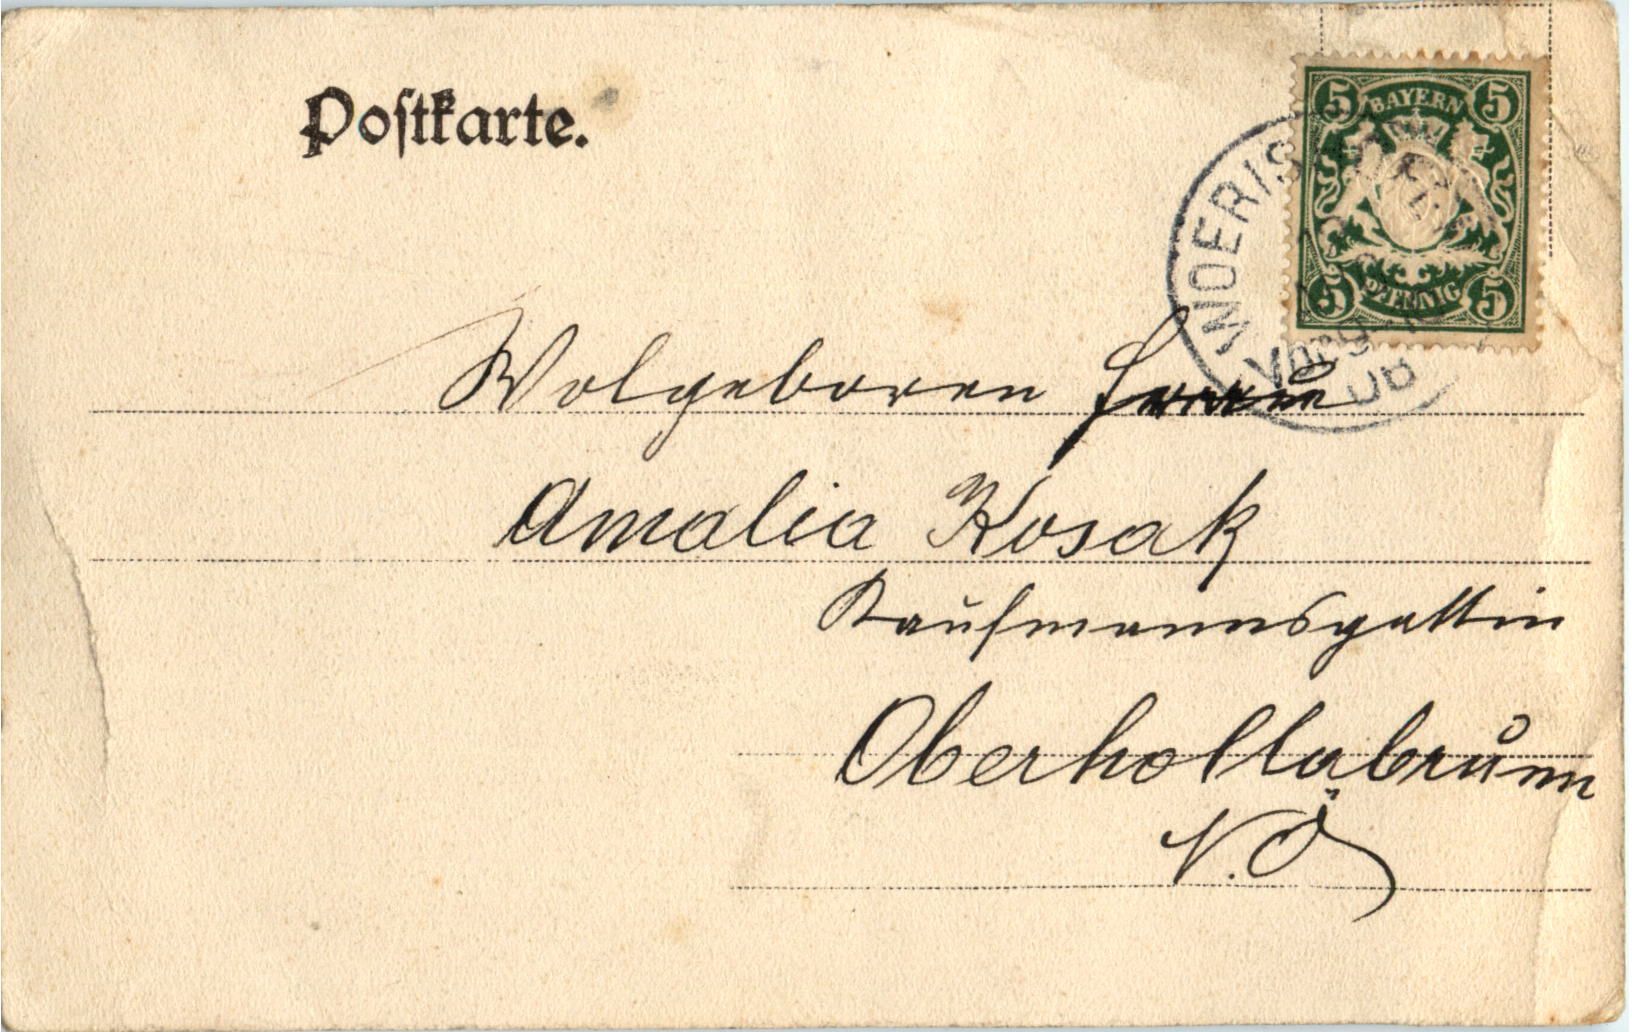 Postkarte.
5 BAYERN 5
5 PFENNIG 5
WOERIS
Vorm
Wolgeboren
Amalia Kosak
Kaufmannsgattin
Oberhollabrunn
N.Ö